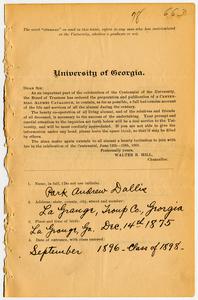 of 663
The word "alumnus" as used in this letter, refers to any man who has matriculated
at the University, whether a graduate or not.
University of Georgia.
DEAR SIR:
As an important part of the celebration of the Centennial of the University,
the Board of Trustees has ordered the preparation and publication of a CENTEN-
NIAL ALUMNI CATALOGUE, to contain, as far as possible, a full but concise account
of the life and services of all the alumni during the century.
The hearty co-operation of all living alumni, and of the relatives and friends
of all deceased, is necessary to the success of the undertaking. Your prompt and
careful attention to the inquiries set forth herein will be a real service to the Univer-
sity, and will be most cordially appreciated. If you are not able to give the
information under any head, please leave the space blank, so that it may be filled
by others.
The alma mater again extends to all alumni a hearty invitation to join with
her in the celebration of the centennial, June
Fraternally yours,
WALTER B. HILL,
Chancellor.
1. Name, in full, (Do not use initials).
Park Andrew Dallis
2. Address: state, county, city, street and number:
La Grange, Troup Co, Georgia
3. Place and time of birth:
La Grange, Ga. Dec. 14th 1875
4. Date of entrance, with class entered:
September 1896 - Class of 1898 -